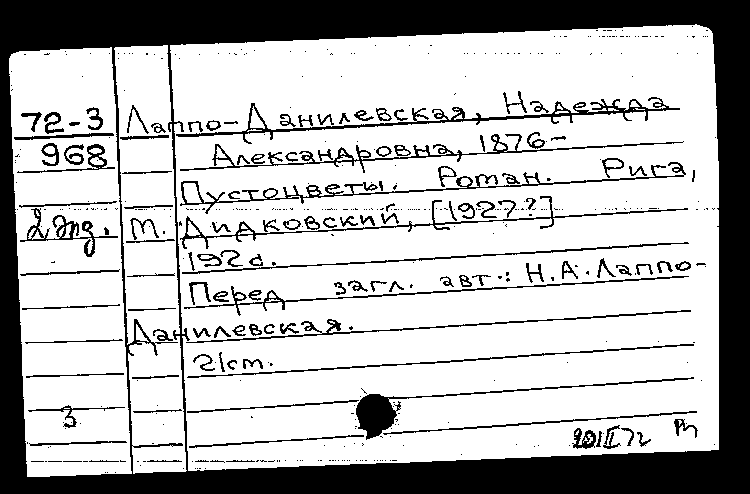 72-3 Лаппо-Данилевская, Надежда
968 Александровна, 1876-
Пустоцветы. Роман. Рига,
2 экз. М. Дидковский, [1927?]
192 с.
Перед загл. авт.: Н.А. Лаппо-
Данилевская.
2/ст.
3